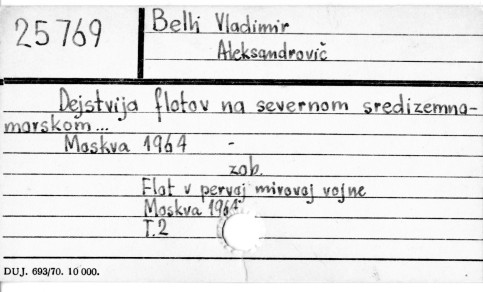 25769
Belli Vladimir
Aleksandrovič
Dejstvija flotov na severnom sredizemna-
morskom...
Moskva 1964 -
zob.
Flot v pervaj mirovaj vojne
Moskva 1964
T.2
DUJ. 693/70. 10 000.